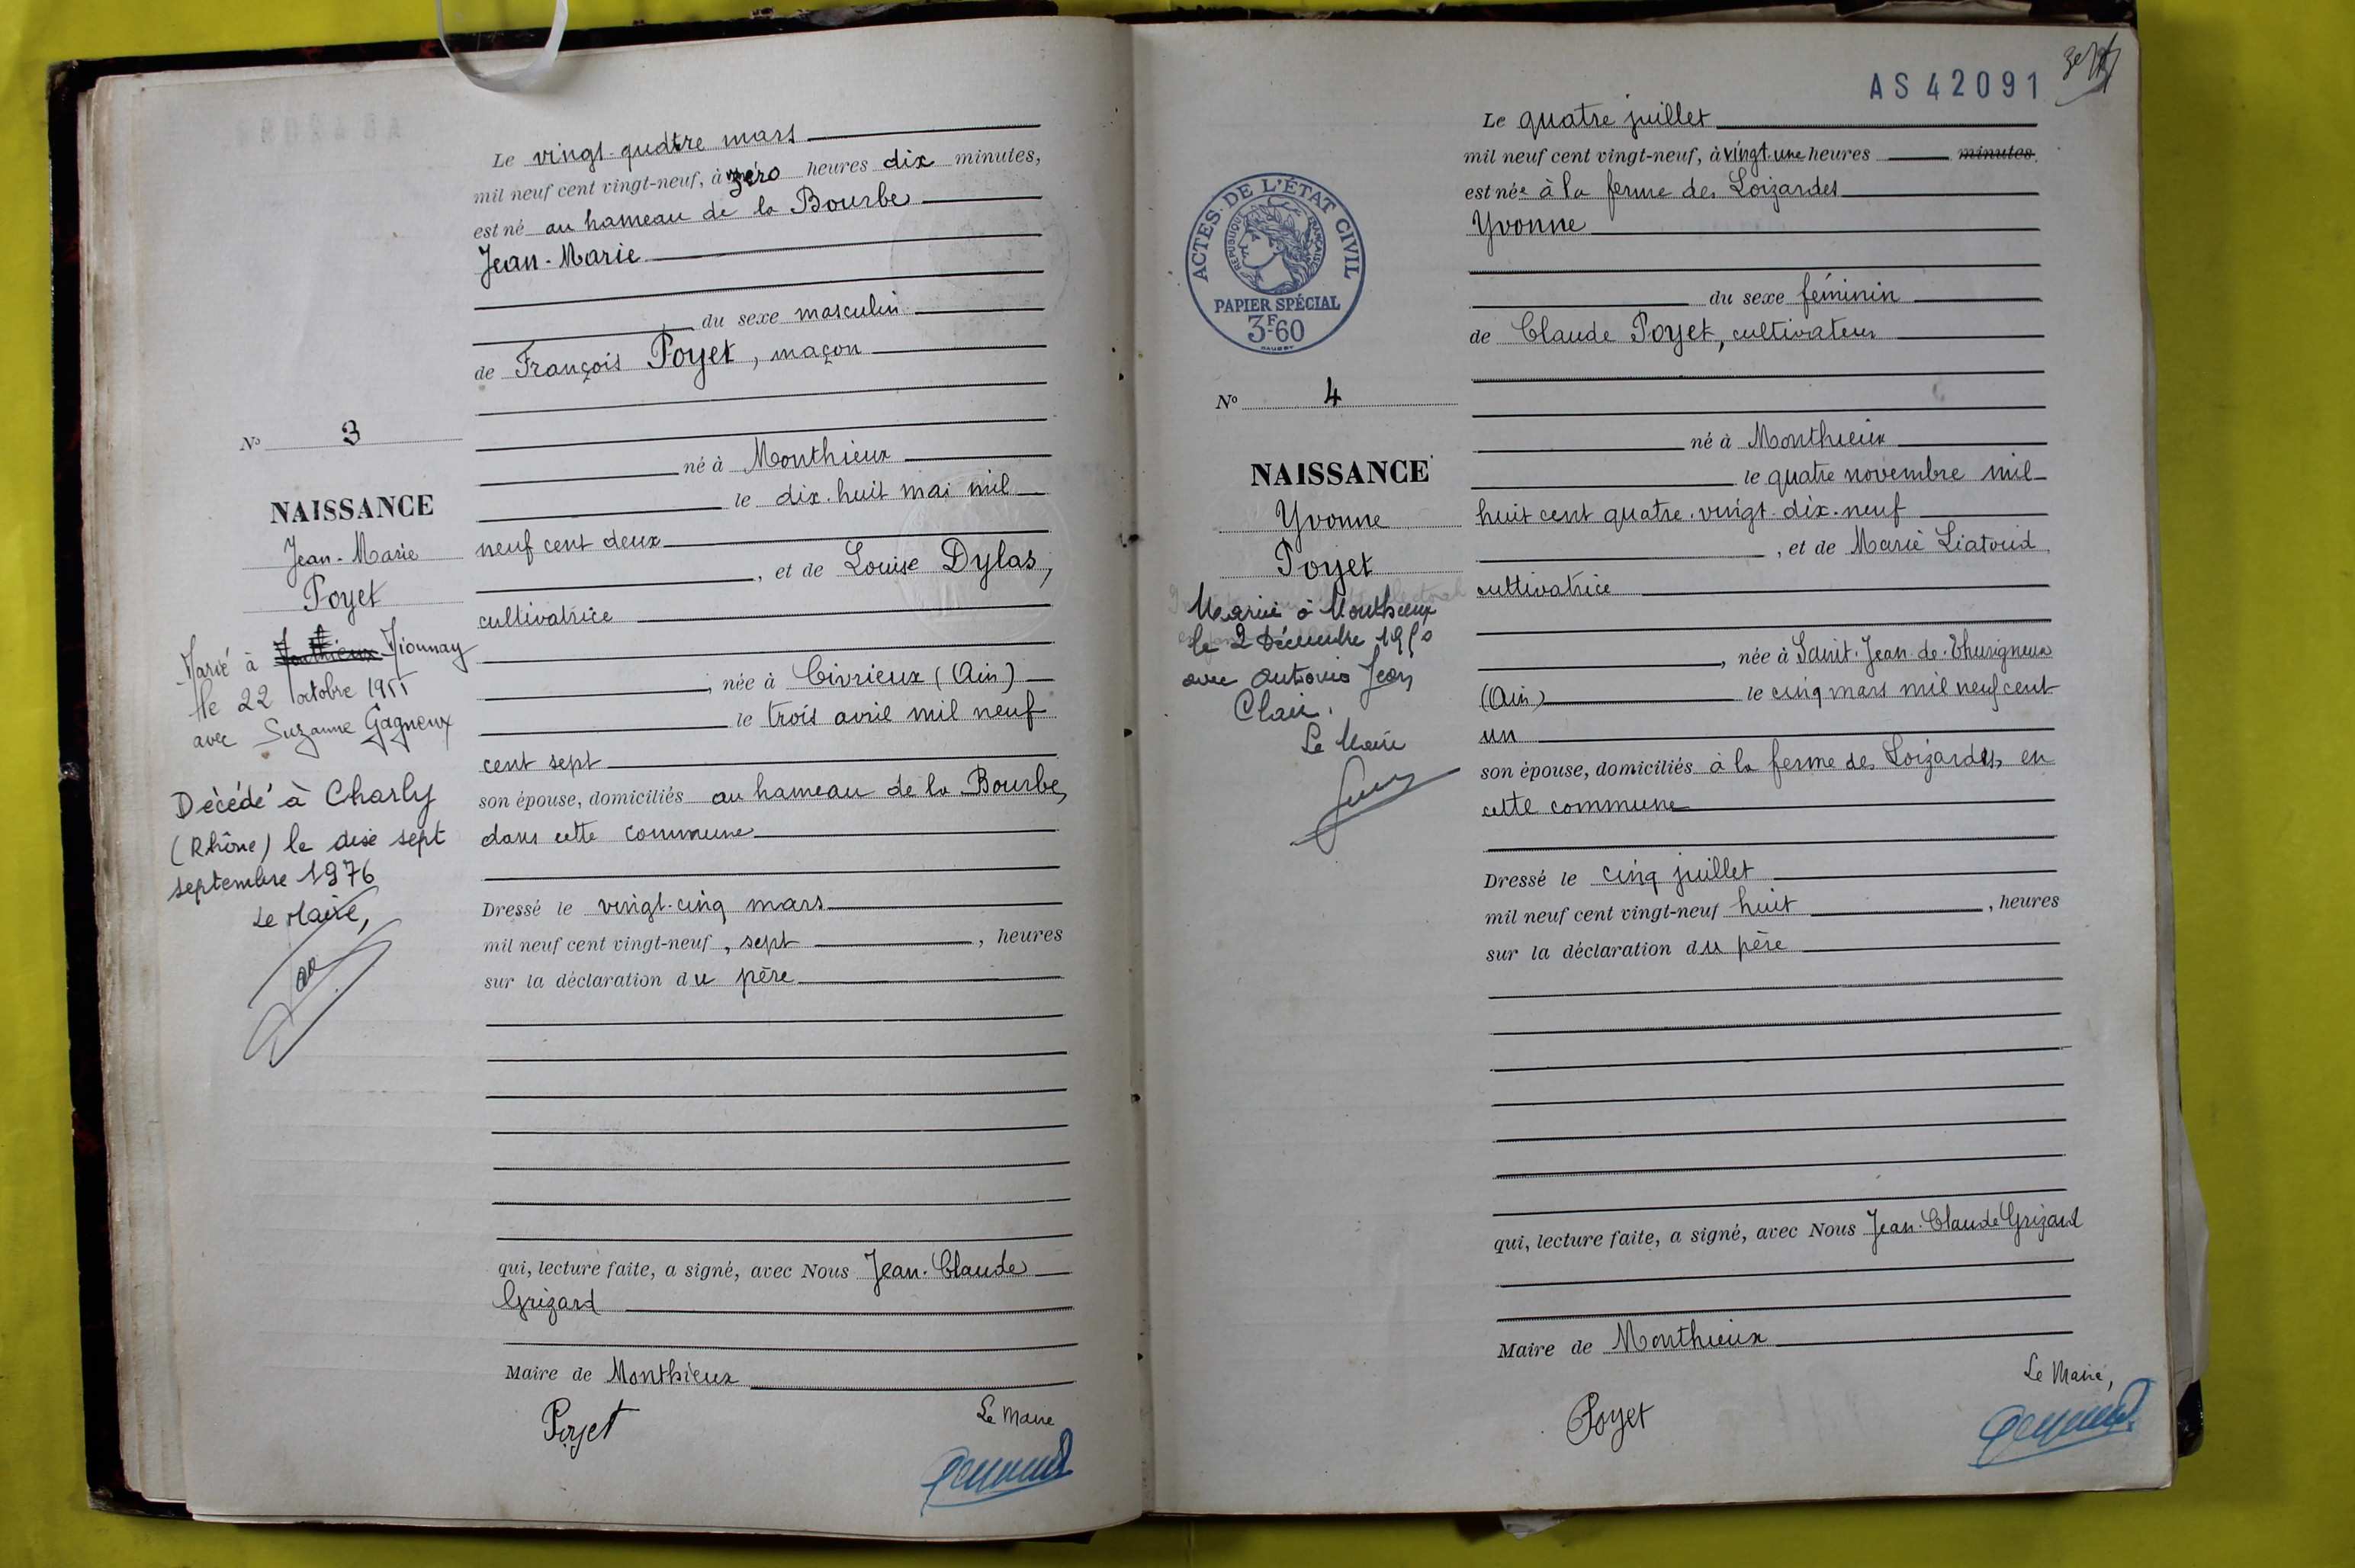 Le vingt-quatre mars
mil neuf cent vingt-neuf, à zéro heures dix minutes,
est né au hameau de la Bourbe
Jean-Marie
du sexe masculin
de François Poyet, maçon
né à Monthieux
le dix-huit mai mil
neuf cent deux
, et de Louise Dylas,
cultivatrice
, née à Civrieux (Ain)
le trois avril mil neuf
cent sept
son épouse, domiciliés au hameau de la Bourbe,
dans cette commune
Dressé le vingt-cinq mars
mil neuf cent vingt-neuf, sept , heures
sur la déclaration du père
qui, lecture faite, a signé, avec Nous Jean-Claude
Grizard
Maire de Monthieux
Poyet
Le Maire
No 3
NAISSANCE
Jean-Marie
Poyet
Marié à Monthieux Mionnay
le 22 octobre 1955
avec Suzanne Gagneux
Décédé à Charly
(Rhône) le dix sept
septembre 1976
Le Maire,
AS 42091
ACTES DE L'ÉTAT CIVIL
RÉPUBLIQUE FRANÇAISE
PAPIER SPÉCIAL
3F60
No 4
NAISSANCE
Yvonne
Poyet
Mariée à Monthieux
le 2 Décembre 1950
avec Antonio Jean
Clair.
Le Maire
Le quatre juillet
mil neuf cent vingt-neuf, à vingt-une heures minutes,
est née à la ferme des Loizardes
Yvonne
du sexe féminin
de Claude Poyet, cultivateur
né à Monthieux
le quatre novembre mil
huit cent quatre-vingt-dix-neuf
, et de Marie Liatoud,
cultivatrice
, née à Saint-Jean-de-Thurigneux
(Ain) le cinq mars mil neuf cent
un
son épouse, domiciliés à la ferme des Loizardes, en
cette commune
Dressé le cinq juillet
mil neuf cent vingt-neuf huit , heures
sur la déclaration du père
qui, lecture faite, a signé, avec Nous Jean-Claude Grizard
Maire de Monthieux
Poyet
Le Maire,